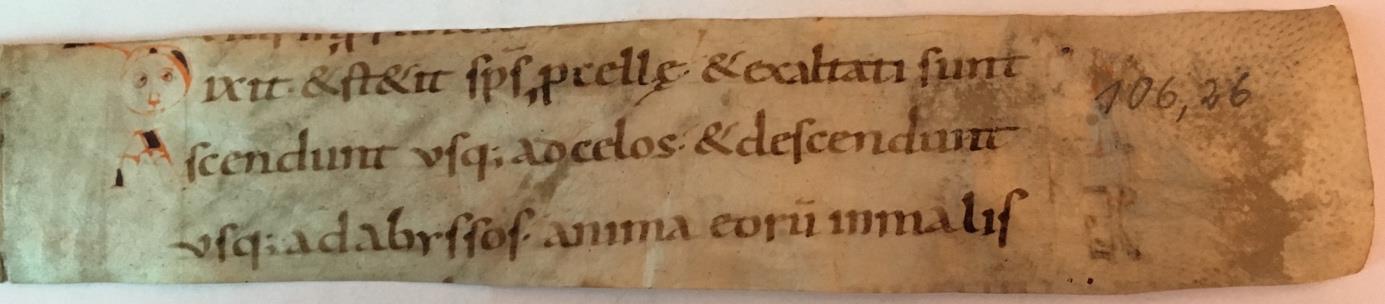 Dixit · & st&it sps̄ ꝓcellę · & exaltati sunt
106,26
Ascendunt vsq; ad celos · & descendunt
vsq; ad abyssos · anima eorū in malis